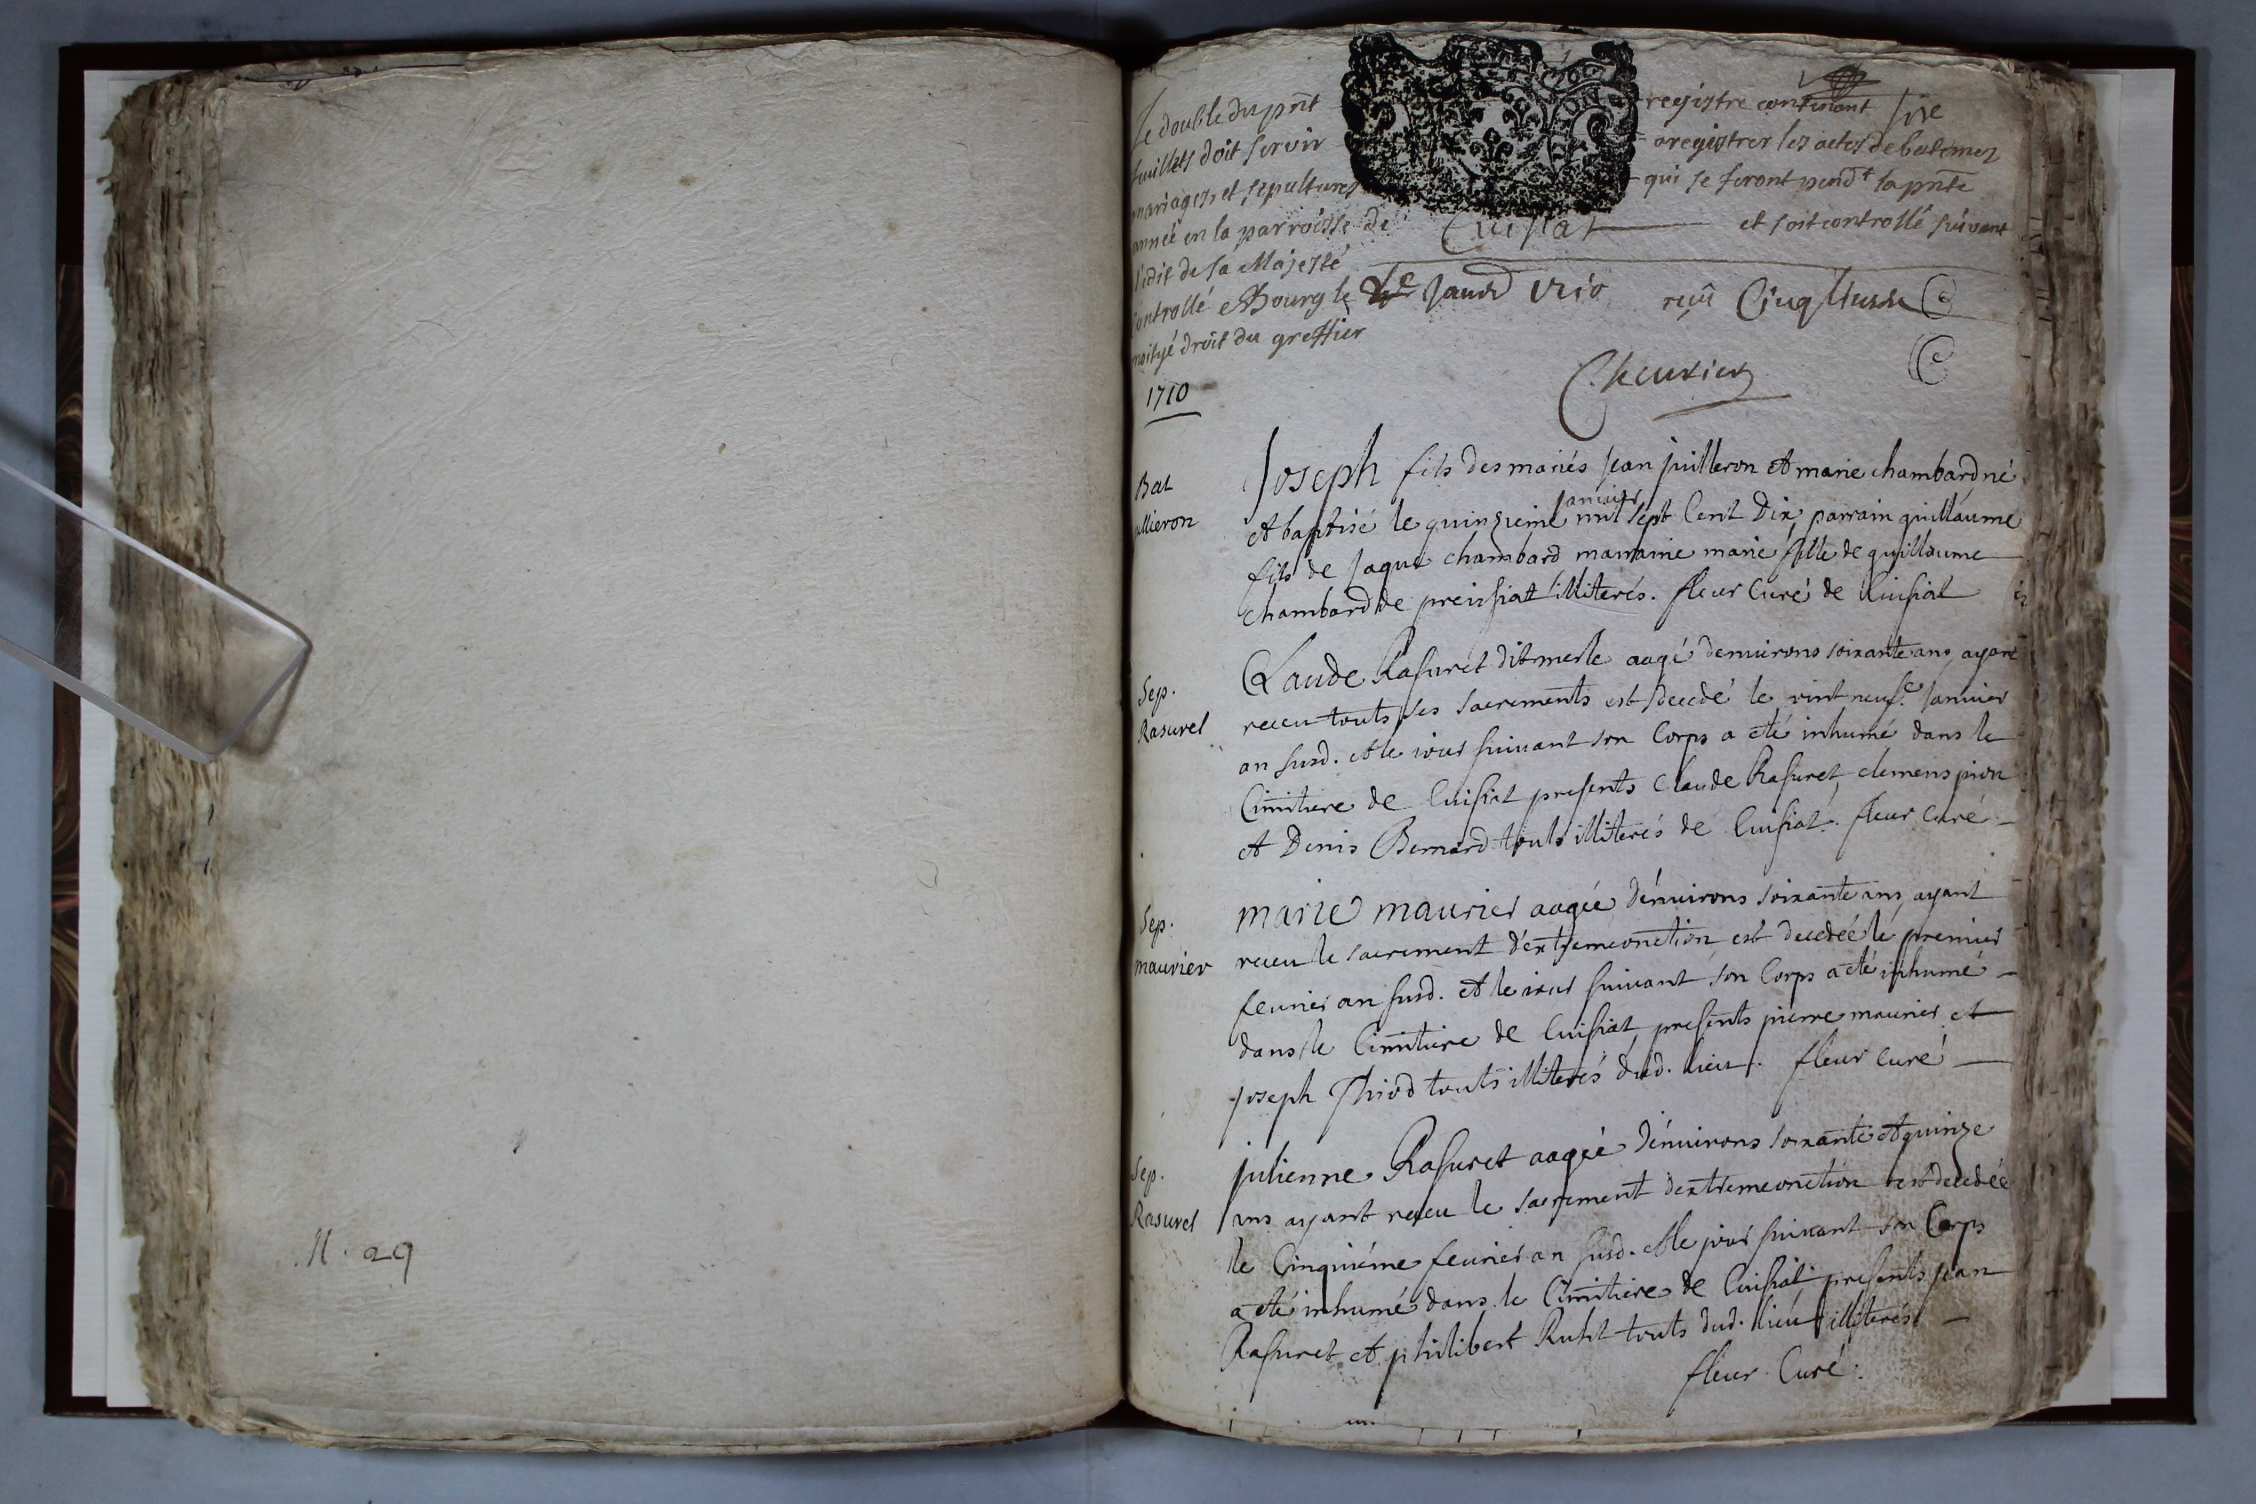 N. 29
Le double du pnt registre contenant six
feuillets doit servir a registrer les actes de batemes
mariages et sepultures qui se feront pendt la pnte
année en la parroisse de Cuisiat et soit controllé suivant
l'edit de sa Majesté
Controllé a Bourg le Janvr 1710 reçû Cinq livres
moityé droit du greffier
Chevrier
1710
Bat
ullieron
Joseph fils des mariés Jean juilleron et marie chambard né
et baptisé le quinzieme janvier mil sept Cent Dix parrain guillaume
fils de Jaque chambard marraine marie fille de guillaume
chambard de preissiat illiterés. fleur Curé de Cuisiat
Sep.
Rasurel
Claude Rasuret dit merle aagé denvirons soixante ans ayant
receu touts ses sacrements est decedé le vint neufe. Janvier
an susd. et le iour suivant son Corps a eté inhumé dans le
Cimitiere de Cuisiat presents Claude Rasuret, clemens pion
et Denis Bernard touts illiterés de Cuisiat. fleur Curé
Sep.
maurier
marie maurier aagée d'environs soixante ans ayant
receu le sacrement d'extremeonction est decedée le premier
fevrier an susd. et le iour suivant son Corps a eté inhumé
dans le Cimitiere de Cuisiat presents pierre maurier et
Joseph touts illiterés dud. lieu. fleur Curé
Sep.
Rasurel
julienne Rasuret aagée d'environs soixante et quinze
ans ayant receu le sacrement dextremeonction est decedée
le Cinquiéme fevrier an susd. et le jour suivant son Corps
a eté inhumé dans le Cimitiere de Cuisiat presents jean
Rasuret et philibert touts dud. lieu illiterés
fleur Curé.